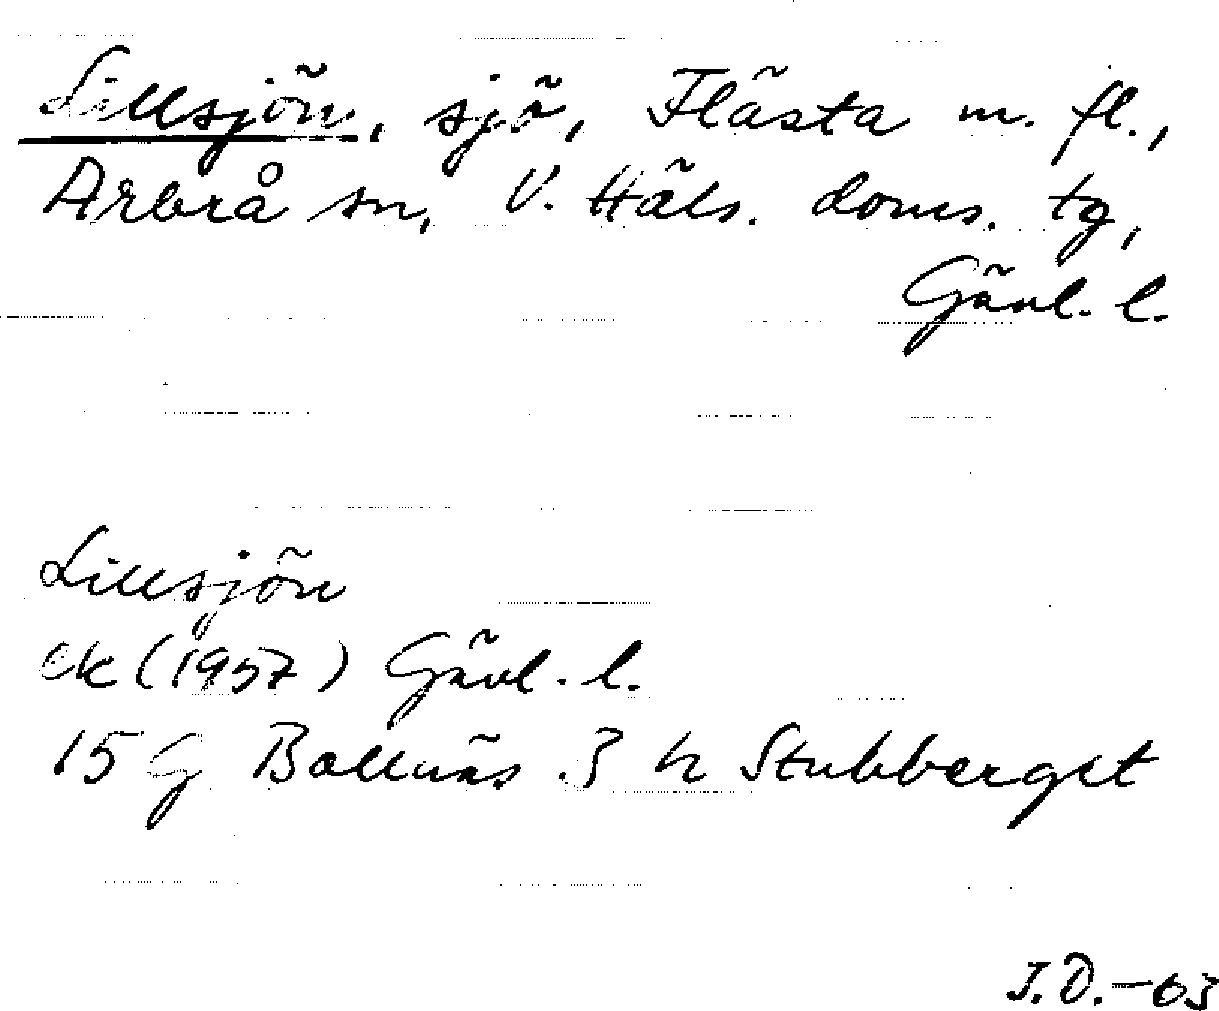 Lillsjön, sjö, Flästa m. fl.,
Arbrå sn, V. Häls. doms. tg,
Gävl. l.
Lillsjön
ek (1957) Gävl. l.
15 G Bollnäs 3 h Stubberget
J.Ö.-63